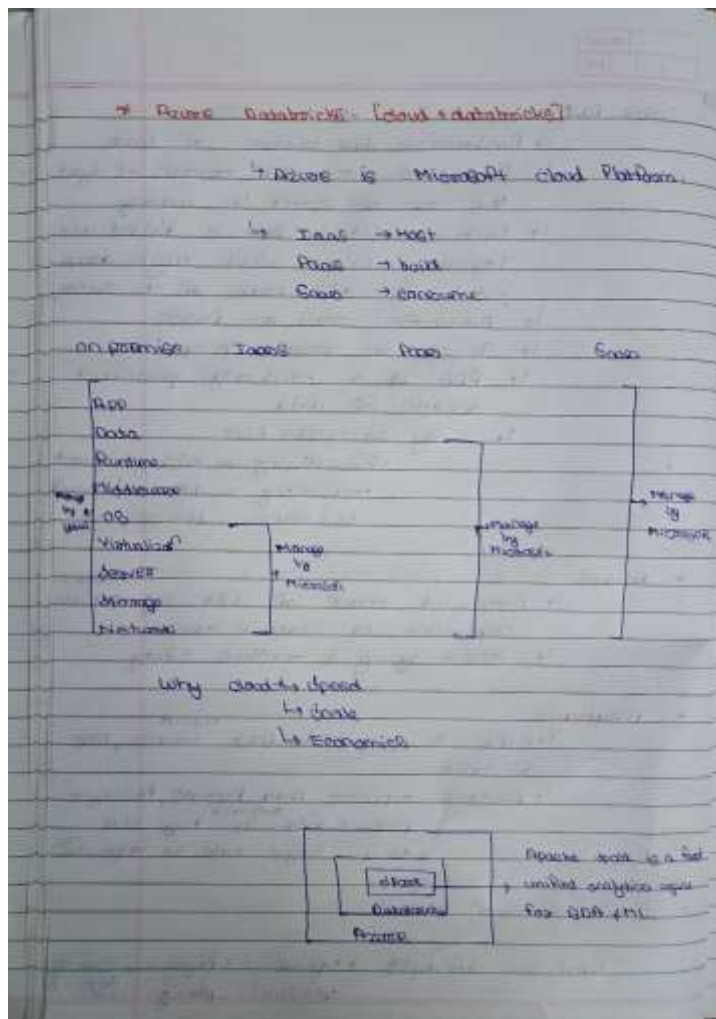 * Azure Databricks:- [cloud + databricks]
↳ Azure is Microsoft cloud Platform.
↳ IaaS → Host
PaaS → build
SaaS → consume
on premise IaaS PaaS SaaS
App
Data
Runtime
Middleware
OS
Virtualizaⁿ
Server
Storage
Network
Manage by
Manage by Microsoft
Manage by Microsoft
Manage by Microsoft
Why cloud ↳ Speed
↳ Scale
↳ Economics
Spark
Databricks
Azure
→ Apache spark is a fast
unified analytics
for BDA & ML